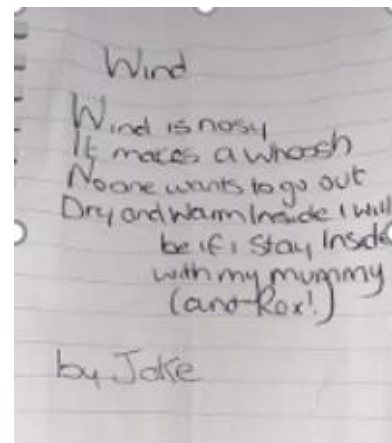 Wind
Wind is nosy
It makes a whoosh
No one wants to go out
Dry and warm inside I will
be if i stay inside
with my mummy
(and Rox!)
by Jake